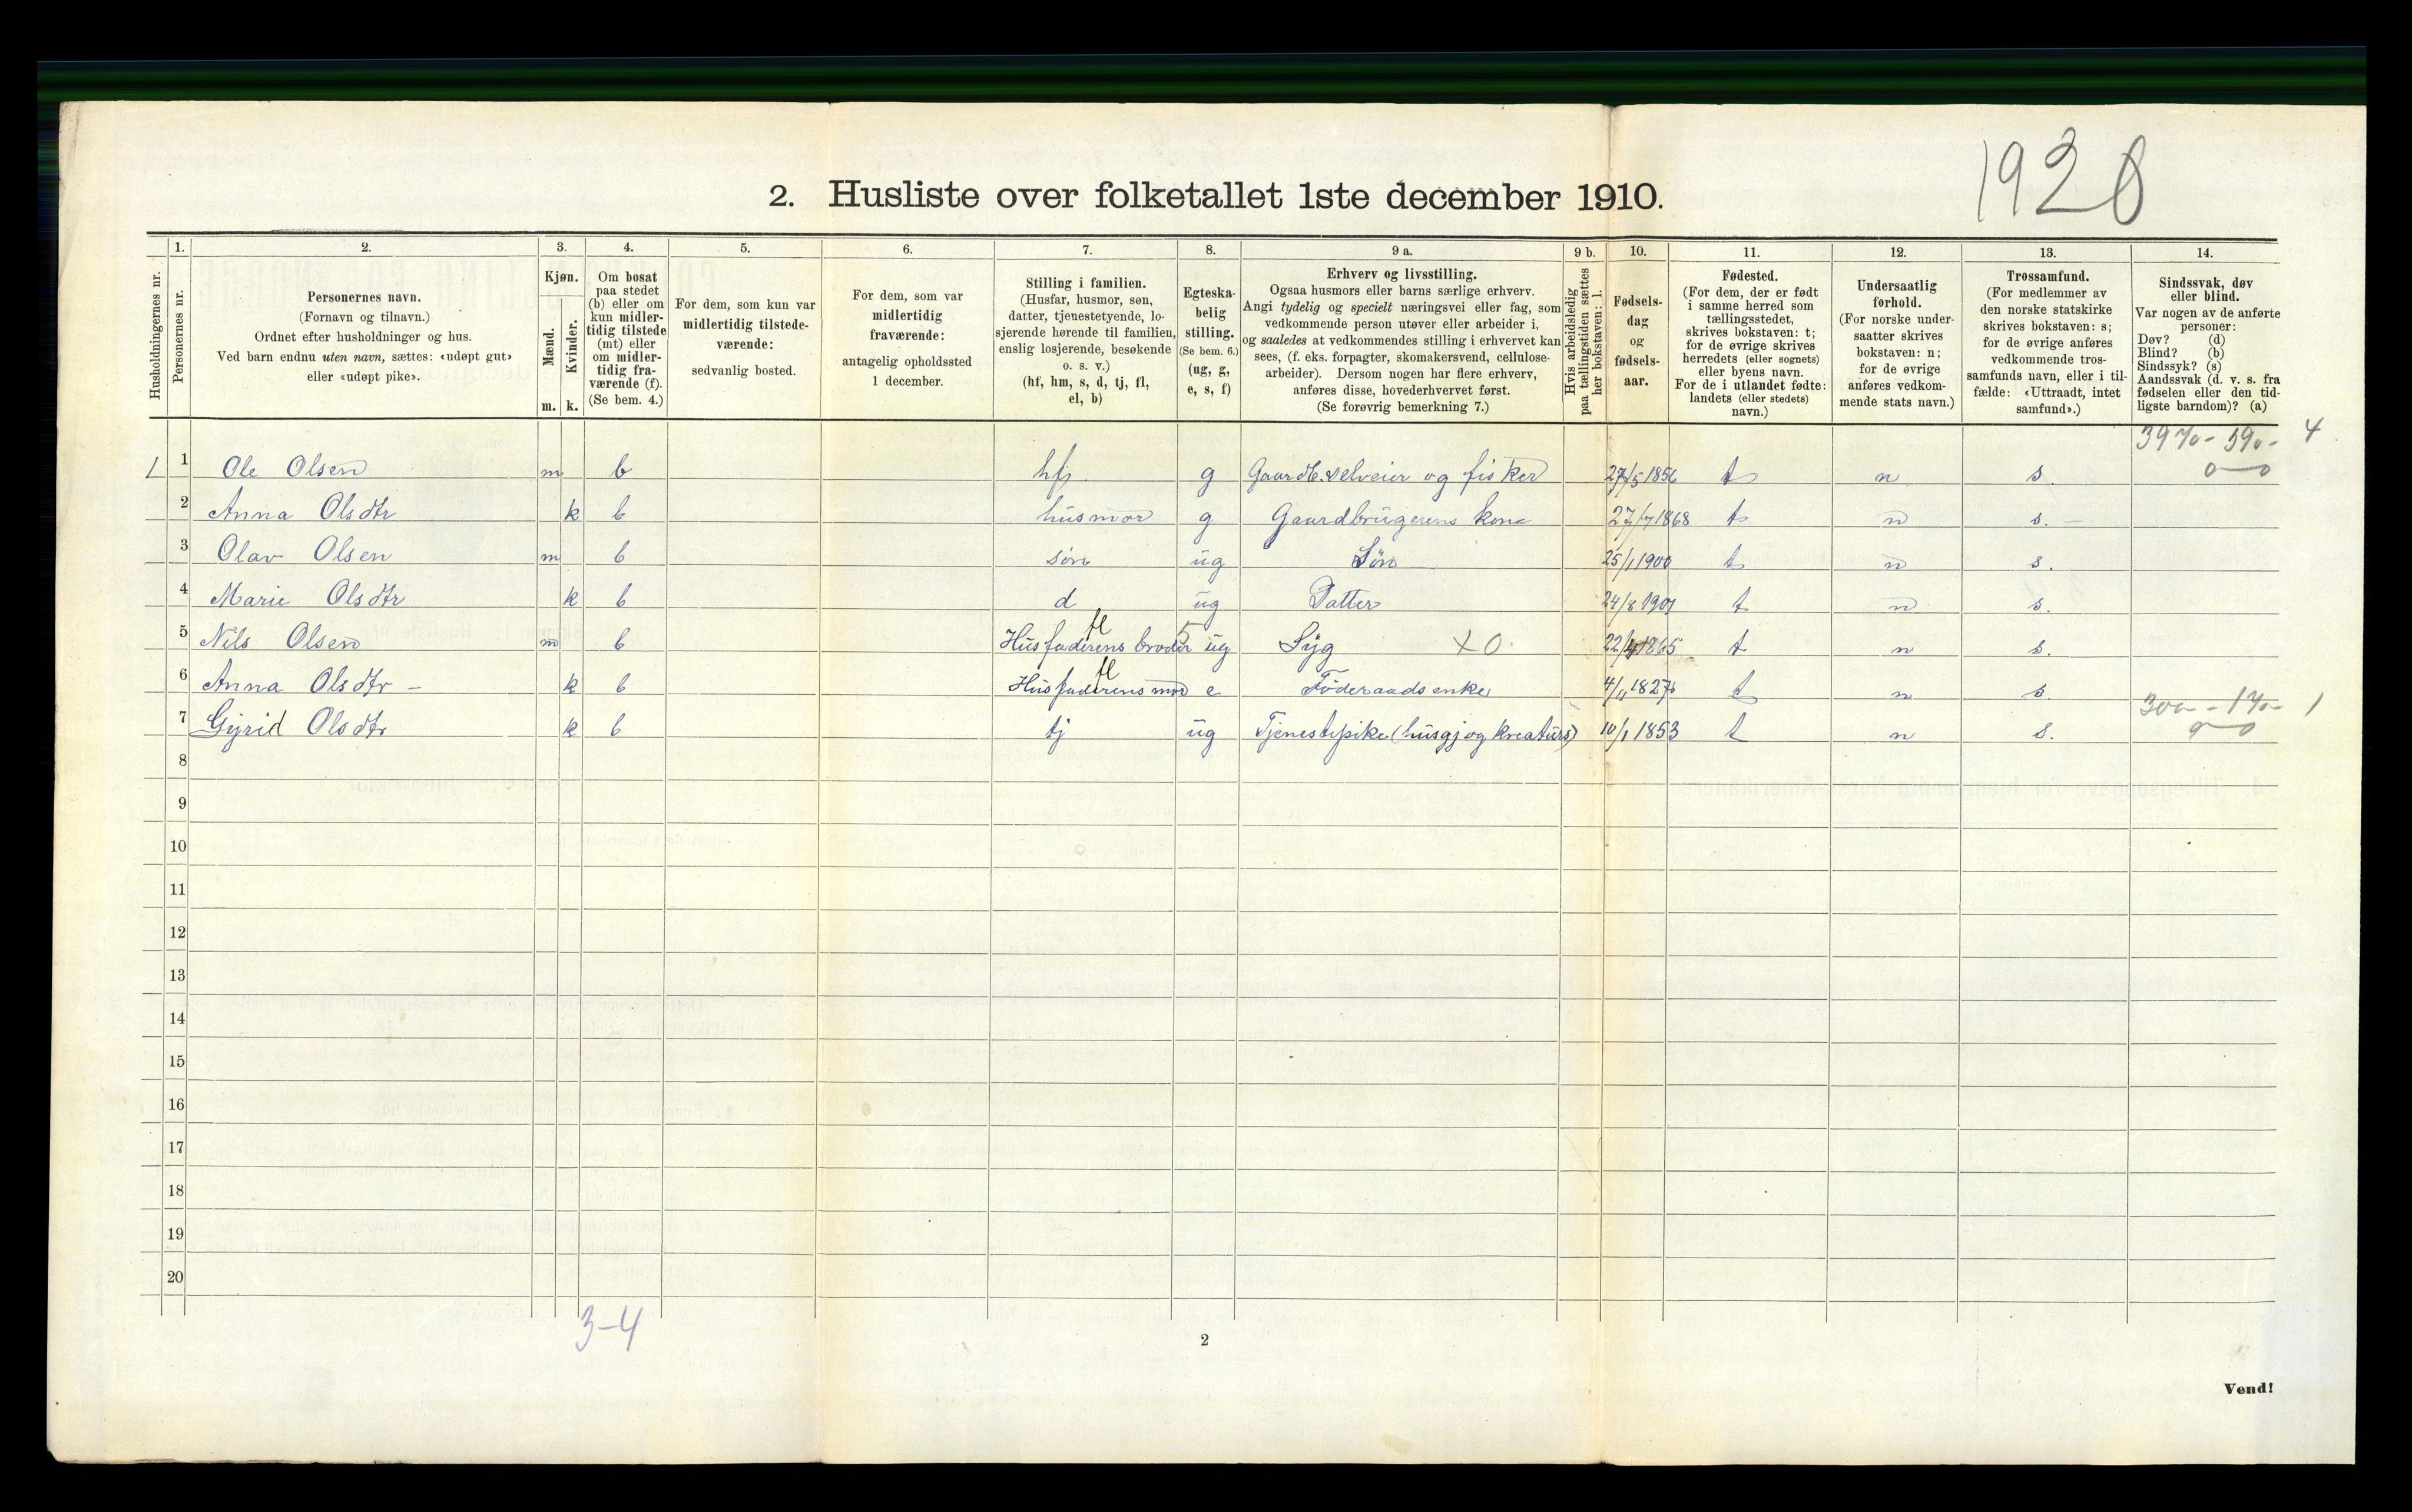 1920
2. Husliste over folketallet 1ste december 1910.
Husholdningernes nr.
1.
Personernes nr.
2.
Personernes navn.
(Fornavn og tilnavn.)
Ordnet efter husholdninger og hus.
Ved barn endnu uten navn, sættes: «udøpt gut»
eller «udøpt pike».
3.
Kjøn.
Mænd.
Kvinder.
m. k.
4.
Om bosat
paa stedet
(b) eller om
kun midler-
tidig tilstede
(mt) eller
om midler-
tidig fra-
værende (f).
(Se bem. 4.)
5.
For dem, som kun var
midlertidig tilstede-
værende:
sedvanlig bosted.
6.
For dem, som var
midlertidig
fraværende:
antagelig opholdssted
1 december.
7.
Stilling i familien.
(Husfar, husmor, søn,
datter, tjenestetyende, lo-
sjerende hørende til familien,
enslig losjerende, besøkende
o. s. v.)
(hf, hm, s, d, tj, fl,
el, b)
8.
Egteska-
belig
stilling.
(Se bem. 6.)
(ug, g,
e, s, f)
9 a.
Erhverv og livsstilling.
Ogsaa husmors eller barns særlige erhverv.
Angi tydelig og specielt næringsvei eller fag, som
vedkommende person utøver eller arbeider i,
og saaledes at vedkommendes stilling i erhvervet kan
sees, (f. eks. forpagter, skomakersvend, cellulose-
arbeider). Dersom nogen har flere erhverv,
anføres disse, hovederhvervet først.
(Se forøvrig bemerkning 7.)
9 b.
Hvis arbeidsledig
paa tællingstiden sættes
her bokstaven: l.
10.
Fødsels-
dag
og
fødsels-
aar.
11.
Fødested.
(For dem, der er født
i samme herred som
tællingsstedet,
skrives bokstaven: t;
for de øvrige skrives
herredets (eller sognets)
eller byens navn.
For de i utlandet fødte:
landets (eller stedets)
navn.)
12.
Undersaatlig
førhold.
(For norske under-
saatter skrives
bokstaven: n;
for de øvrige
anføres vedkom-
mende stats navn.)
13.
Trossamfund.
(For medlemmer av
den norske statskirke
skrives bokstaven: s;
for de øvrige anføres
vedkommende tros-
samfunds navn, eller i til-
fælde: «Uttraadt, intet
samfund».)
14.
Sindssvak, døv
eller blind.
Var nogen av de anførte
personer:
Døv? (d)
Blind? (b)
Sindssyk? (s)
Aandssvak (d. v. s. fra
fødselen eller den tid-
ligste barndom)? (a)
3970 - 590 - 4
0 — 0
1 1 Ole Olsen m b hf g Gaardb. selveier og fisker 27/5 1856 t n s.
2 Anna Olsdtr k b husmor g Gaardbrugerens kone 27/7 1868 t n s. –
3 Olav Olsen m b søn ug Søn 25/1 1900 t n s.
4 Marie Olsdtr k b d ug Datter 24/8 1901 t n s.
5 Nils Olsen m b Husfaderens broder fl ug Syg X 0. 22/4 1865 t n s.
6 Anna Olsdtr – k b Husfaderens mor fl e Föderaadsenke 4/11 1827 t n s.
300 - 170 - 1
0 — 0
7 Gyrid Olsdtr k b tj ug Tjenestepike (husgj og kreaturs) 10/1 1853 t n s.
8
9
10
11
12
13
14
15
16
17
18
19
20
3-4
2
Vend!